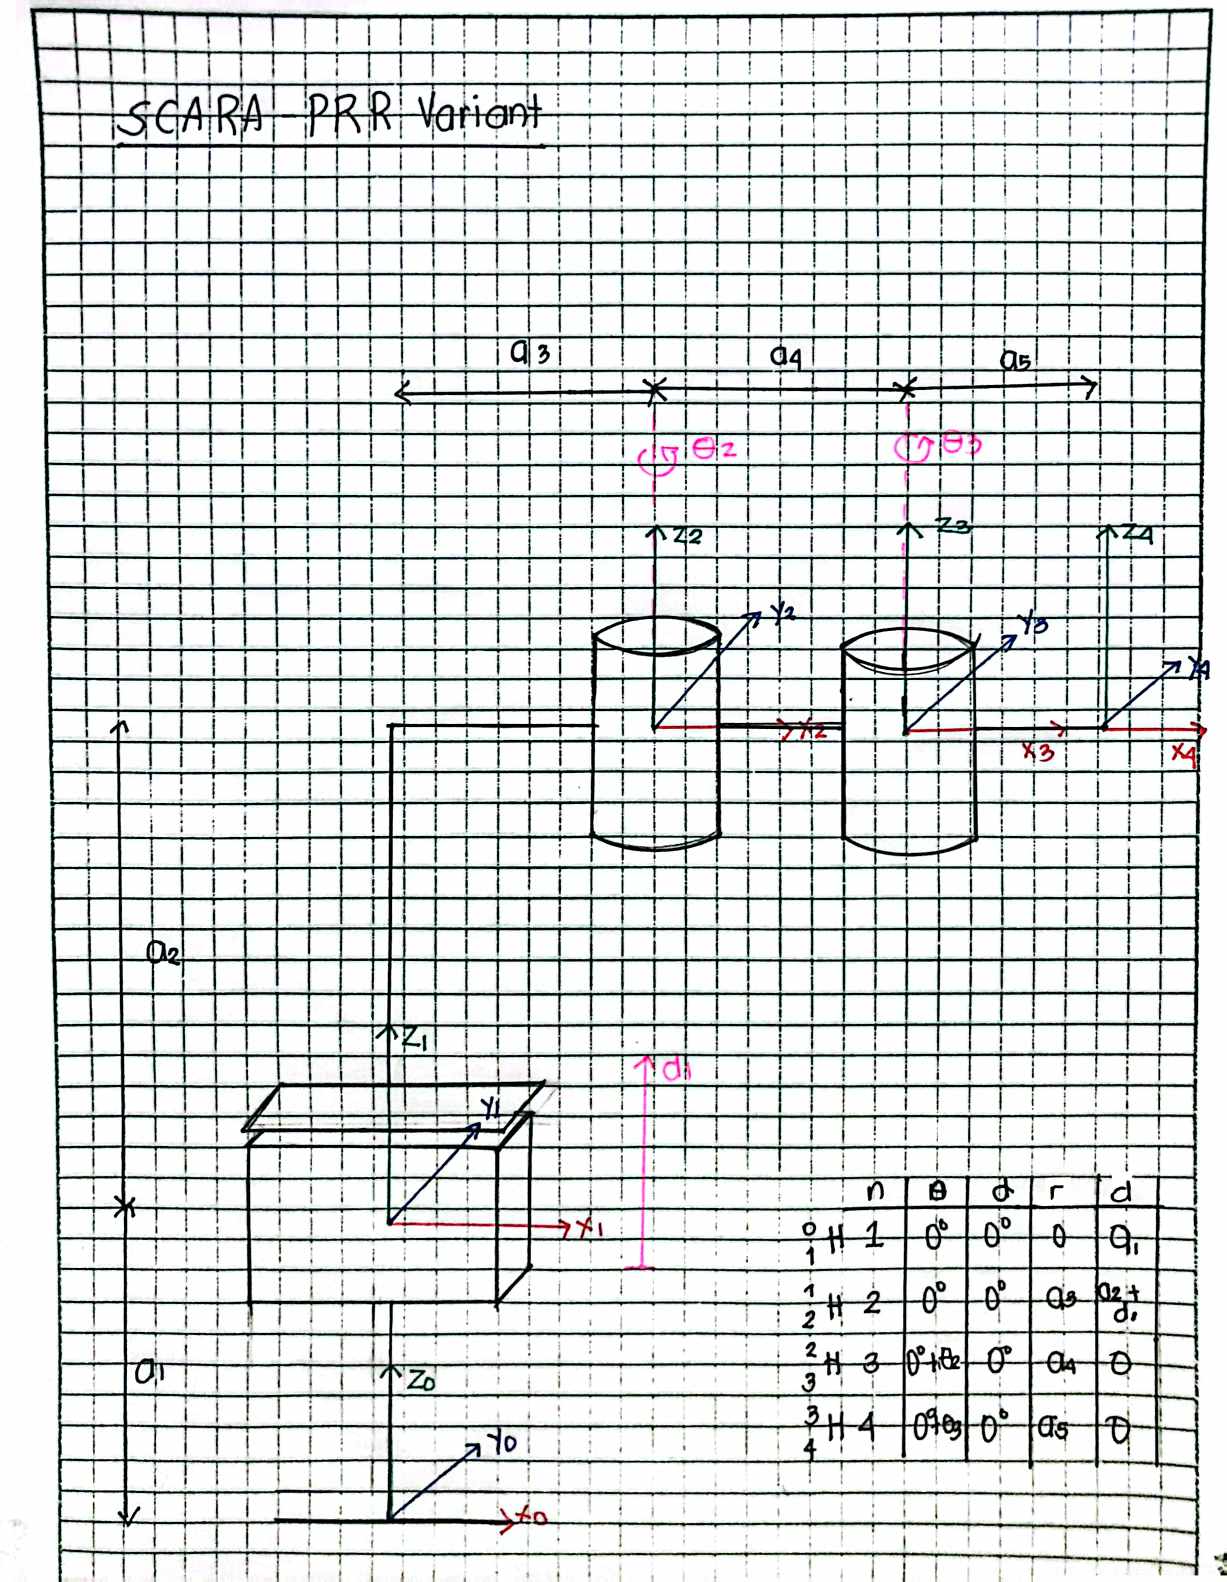 SCARA - PRR Variant
a3 a4 a5
θ2 θ3
Z2 Z3 Z4
Y2 Y3 Y4
X2 X3 X4
a2
Z1
d1
Y1
X1
a1
Z0
Y0
X0
n θ α r d
0 1 H 1 0° 0° 0 a1
1 2 H 2 0° 0° a3 a2+d1
2 3 H 3 0°+θ2 0° a4 0
3 4 H 4 0°+θ3 0° a5 0